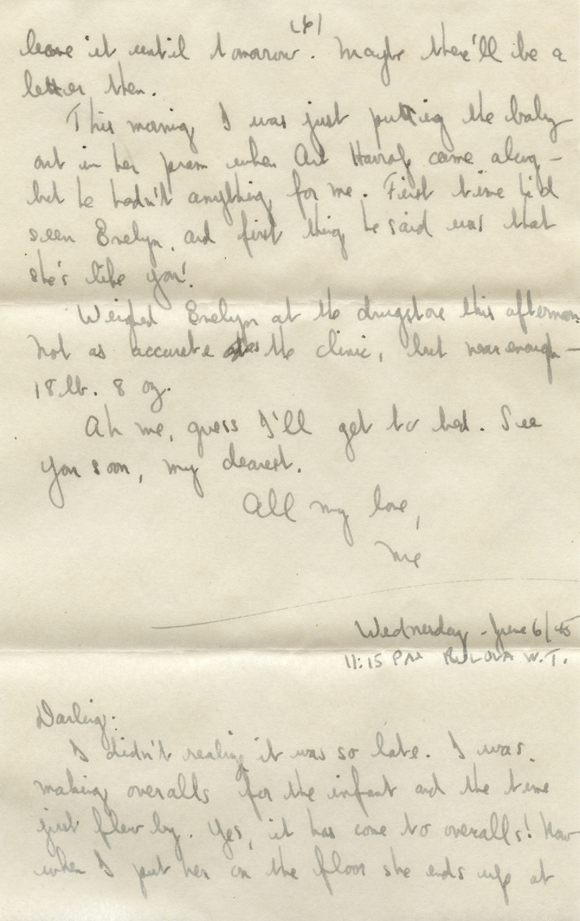 (6)
leave it until tomorrow. Maybe there'll be a
letter then.
This morning I was just putting the baby
out in her pram when Art came along –
but he hadn't anything for me. First time he'd
seen Evelyn, and first thing he said was that
she's like you!
Weighed Evelyn at the drugstore this afternoon
Not as accurate as the clinic, but near enough –
18 lb. 8 oz.
Ah me, guess I'll get to bed. See
you soon, my dearest.
All my love,
Me
Wednesday - June 6/45
11:15 PM BULOVA W.T.
Darling:
I didn't realize it was so late. I was
making overalls for the infant and the time
just flew by. Yes, it has come to overalls! Now
when I put her on the floor she ends up at